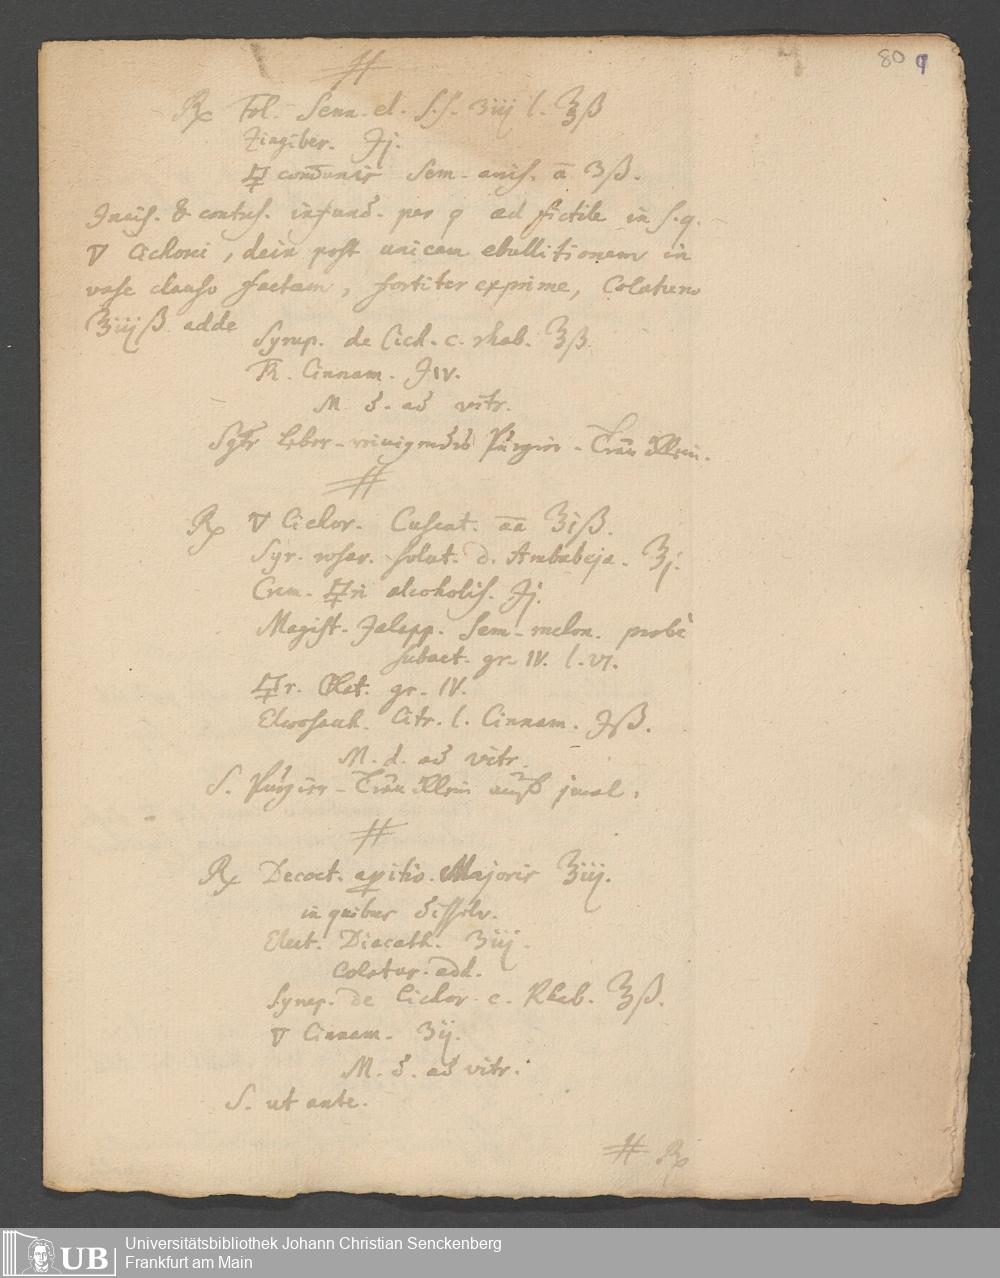 80 9
#
℞ Fol. Senn. el. s.s. ʒiij l. ℥ß
Zingiber. ℈j.
🜿 communis Sem. anis. a̅ ʒß.
Incis. & contus. infund. per ad fictile in s.q.
▽ Cichorei, dein post unicam ebullitionem in
vase clauso factam, fortiter exprime, Colaturae
℥iijß adde
Syrup. de Cich. c. rhab. ℥ß.
Cinnam. ℈iv.
M. d. ad vitr.
Leber-reinigendes Purgier-Träncklein.
#
℞ ▽ Cichor. Cuscut. a̅a̅ ℥iß.
Syr. rosar. solut. d. Ambubeja. ℥j.
Crem. 🜿ri alcoholis. ℈j.
Magist. Jalapp. Sem. melon. probè
subact. gr. IV. l. vi.
🜿r. gr. IV.
Elaeosach. Citr. l. Cinnam. ℈ß.
M. d. ad vitr.
S. Purgier-Träncklein auff 1mal.
#
℞ Decoct. aperitiv. Majoris ℥iij.
in quibus dissolv.
Elect. Diacath. ʒiij.
Colatur. add.
Syrup. de Cichor. c. Rhab. ℥ß.
▽ Cinnam. ʒij.
M. d. ad vitr.
S. ut ante.
# ℞
UB Universitätsbibliothek Johann Christian Senckenberg
Frankfurt am Main